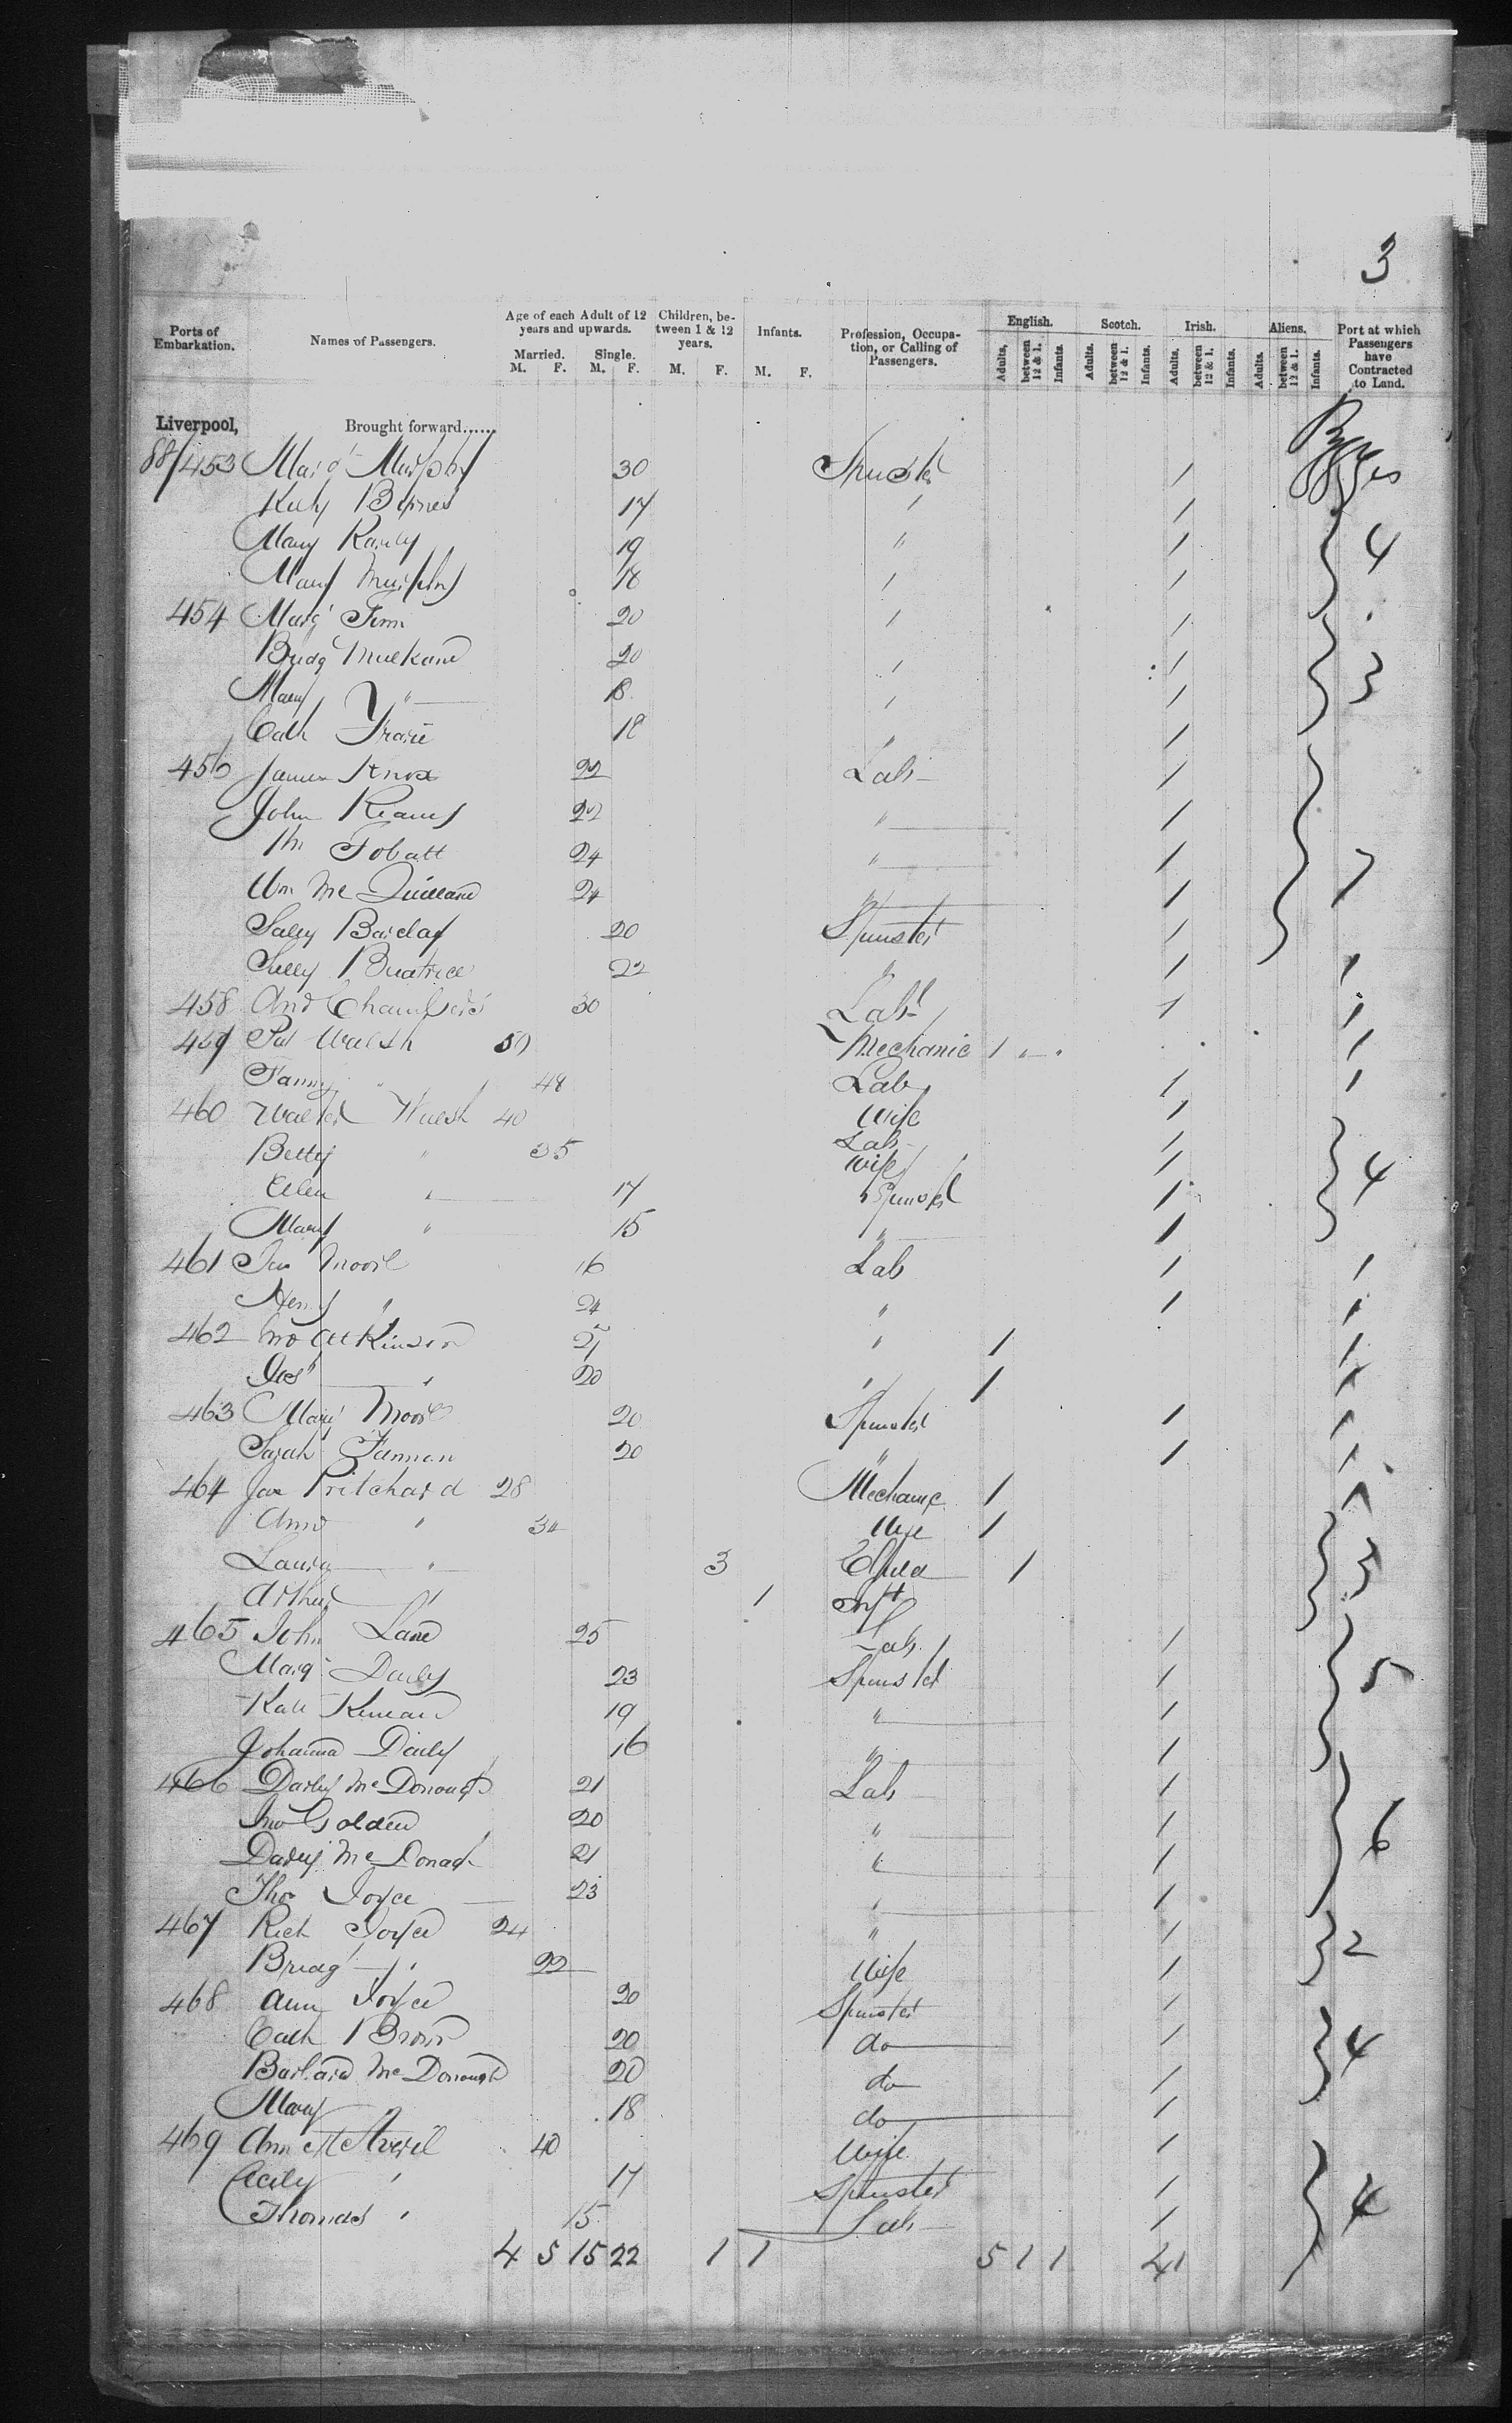 3
Ports of Embarkation. Names of Passengers. Age of each Adult of 12 years and upwards. Children, between 1 & 12 years. Infants. Profession, Occupation, or Calling of Passengers. English. Scotch. Irish. Aliens. Port at which Passengers have Contracted to Land.
Married. Single.
M. F. M. F. M. F. M. F. Adults, between 12 & 1. Infants. Adults, between 12 & 1. Infants. Adults, between 12 & 1. Infants. Adults. between 12 & 1. Infants.
Liverpool, Brought forward......
88/453 Marg Murphy 30 Spinster 1
Byrnes 17 " 1
Mary 19 " 1 4
Mary Murphy 18 " 1
454 Marg Finn 20 " 1
Bridg 20 " 1 3
Mary " 18 " 1
Cath 18 " 1
James Knox 22 Lab 1
John 22 " 1
24 " 1 7
Wm Mc 24 " 1
Sally Barclay 20 Spinster 1
Beatrice 22 " 1 1
458 And Chambers 30 Lab 1 1
459 Pat Walsh 50 Mechanic 1 1
Fanny " 48 Lab 1 1
460 Walter Walsh 40 Wife 1
Betty " 35 Lab 1
Wife 1 4
Ellen " 17 Spinster 1
Mary " 15 " 1
461 Moore 16 Lab 1 1
Henry " 24 " 1 1
462 Jno Atkinson 21 " 1 1
" 20 " 1 1
463 Mary Moore 20 Spinster 1 1
Sarah Fannon 20 " 1 1
464 Jas Pritchard 28 Mechanic 1
Ann " 34 Wife 1
Laura " 3 Child 1 3
Arthur " 1 Inft
465 John Lane 25 Lab 1
Marg Daily 23 Spinster 1 5
Kate 19 " 1
Johanna Daily 16 " 1
466 Darby McDonough 21 Lab 1
Jno Golden 20 " 1
Darby McDonagh 21 " 1 6
Thos Joyce 23 " 1
467 Rich Joyce 24 " 1 2
Bridg " 22 Wife 1
468 Ann Joyce 20 Spinster 1
Cath Brown 20 do 1 4
Barbara McDonough 20 do 1
Mary 18 do 1
469 Ann 40 Wife 1
Cicily " 17 Spinster 1
Thomas " 15 Lab 1 4
4 5 15 22 1 1 5 1 1 41